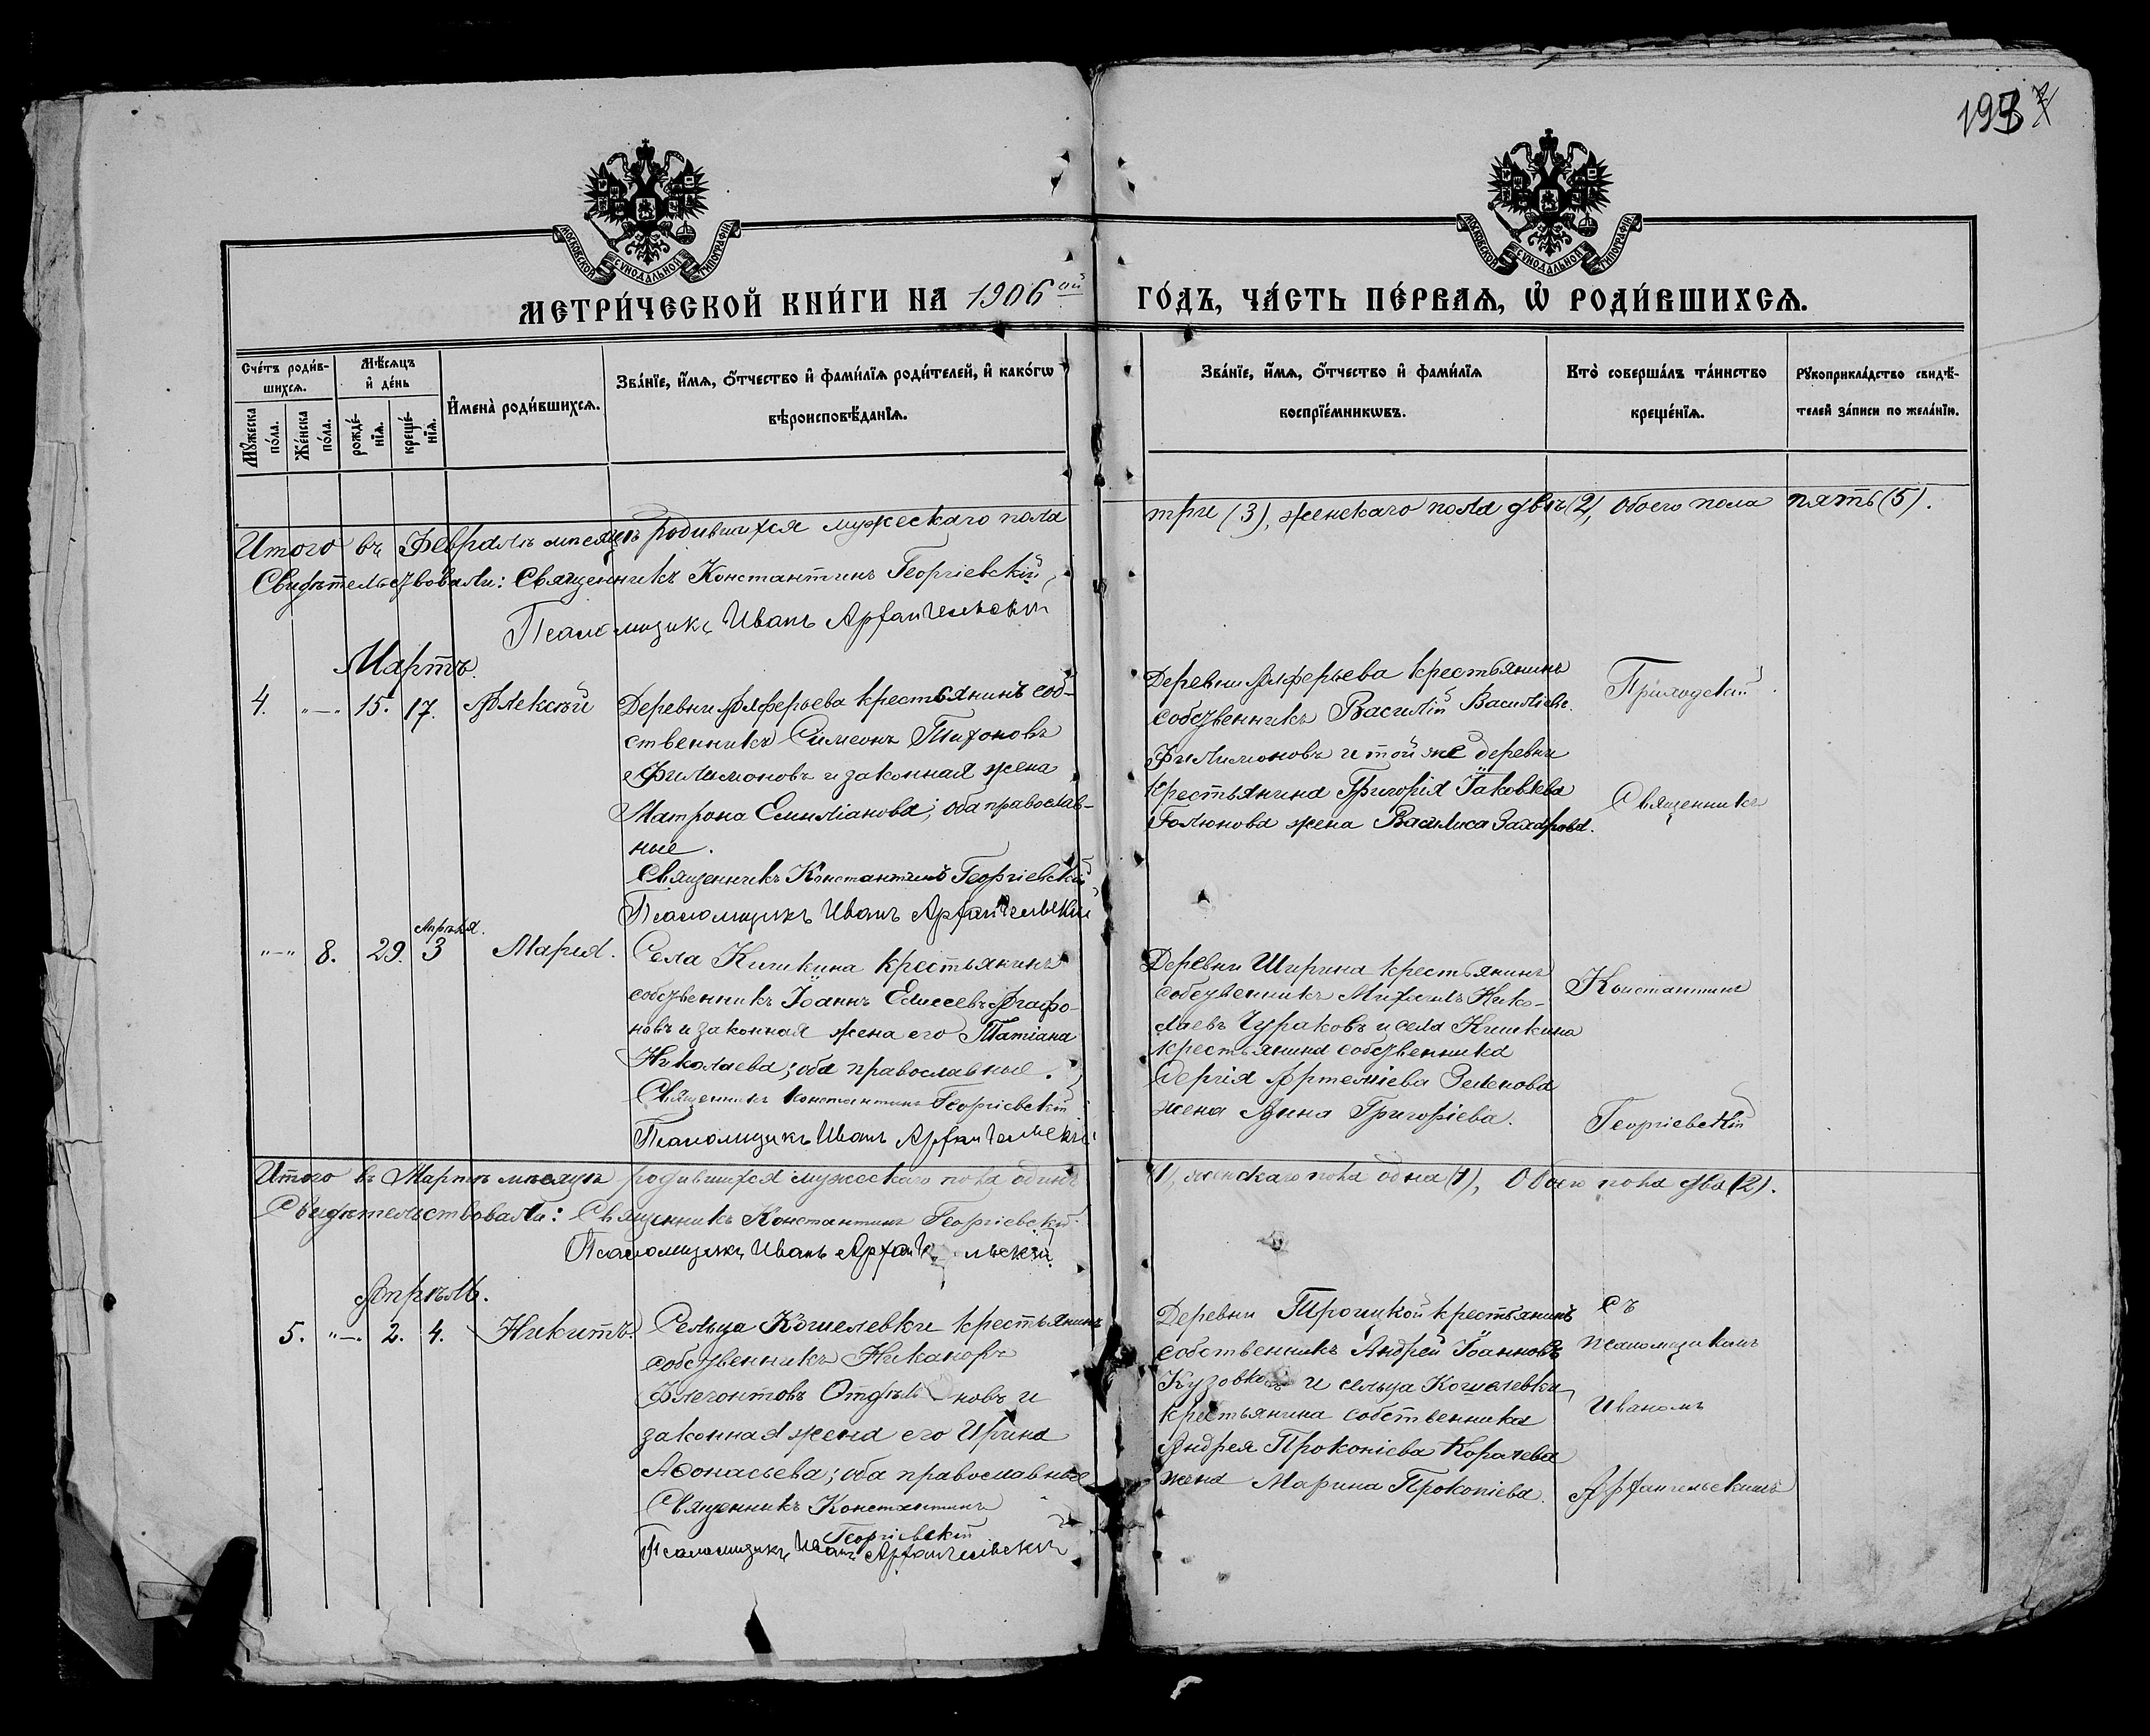 193
МОСКОВСКОЙ СѴНОДАЛЬНОЙ ТИПОГРАФІИ
МОСКОВСКОЙ СѴНОДАЛЬНОЙ ТИПОГРАФІИ
МЕТРИ́ЧЕСКОЙ КНИ́ГИ НА 1906ой ГО́ДЪ, ЧА́СТЬ ПЕ́РВАѦ, Ѡ҆ РОДИ́ВШИХСѦ.
Сче́тъ роди́в-
шихсѧ.
Мѣ́сѧцъ
и҆ де́нь
Мꙋ́жеска
по́ла.
Же́нска
по́ла.
рожде́-
нїѧ.
креще́-
нїѧ.
И҆мена̀ роди́вшихсѧ.
Зва́нїе, и҆́мѧ, ѻ҆́тчество и҆ фами́лїѧ роди́телей, и҆ како́гѡ
вѣроисповѣ́данїѧ.
Зва́нїе, и҆́мѧ, ѻ҆́тчество и҆ фами́лїѧ
воспрїе́мникѡвъ.
Кто̀ соверша́лъ та́инство
креще́нїѧ.
Рꙋкоприкла́дство свидѣ́-
телей за́писи по жела́нїю.
Итого въ Февралѣ мѣсяцѣ родившихся мужескаго пола три (3), женскаго пола двѣ (2), обоего пола пять (5).
Свидѣтельствовали: Священникъ Константинъ Георгіевскій,
Псаломщикъ Иванъ Архангельскій
Мартъ.
4. „—„ 15. 17. Алексѣй
Деревни Алферьева крестьянинъ соб-
ственникъ Симеонъ Тихоновъ
Филимоновъ и законная жена
Матрона Емиліанова; оба православ-
ные.
Священникъ Константинъ Георгіевскій
Псаломщикъ Иванъ Архангельскій
Деревни Алферьева крестьянинъ
собственникъ Василій Василіевъ
Филимоновъ и той же деревни
крестьянина Григорія Іаковлева
Голюнова жена Василиса Захарова.
Приходскій
Священникъ
„—„ 8. 29. Апрѣля. 3 Марія.
Села Кишкина крестьянинъ
собственникъ Іоаннъ Елисеевъ Агафо-
новъ и законная жена его Татіана
Николаева; оба православные.
Священникъ Константинъ Георгіевскій
Псаломщикъ Иванъ Архангельскій
Деревни Ширина крестьянинъ
собственникъ Михаилъ Нико-
лаевъ Чураковъ и села Кишкина
крестьянина собственника
Сергія Артеміева Зеленова
жена Анна Григоріева.
Константинъ
Георгіевскій
Итого въ Мартѣ мѣсяцѣ родившихся мужескаго пола одинъ (1), женскаго пола одна (1), обоего пола два (2).
Свидѣтельствовали: Священникъ Константинъ Георгіевскій
Псаломщикъ Иванъ Архангельскій.
Апрѣль.
5. „—„ 2. 4. Никита.
Сельца Кошелевки крестьянинъ
собственникъ Никаноръ
Флегонтовъ и
законная жена его Ирина
Аѳонасьева; оба православные
Священникъ Константинъ
Георгіевскій
Псаломщикъ Иванъ Архангельскій
Деревни Троицкой крестьянинъ
собственникъ Андрей Іоанновъ
и сельца Кошелевки
крестьянина собственника
Андрея Прокопіева Корачева
жена Марина Прокопіева.
съ
псаломщикомъ
Иваномъ
Архангельскимъ